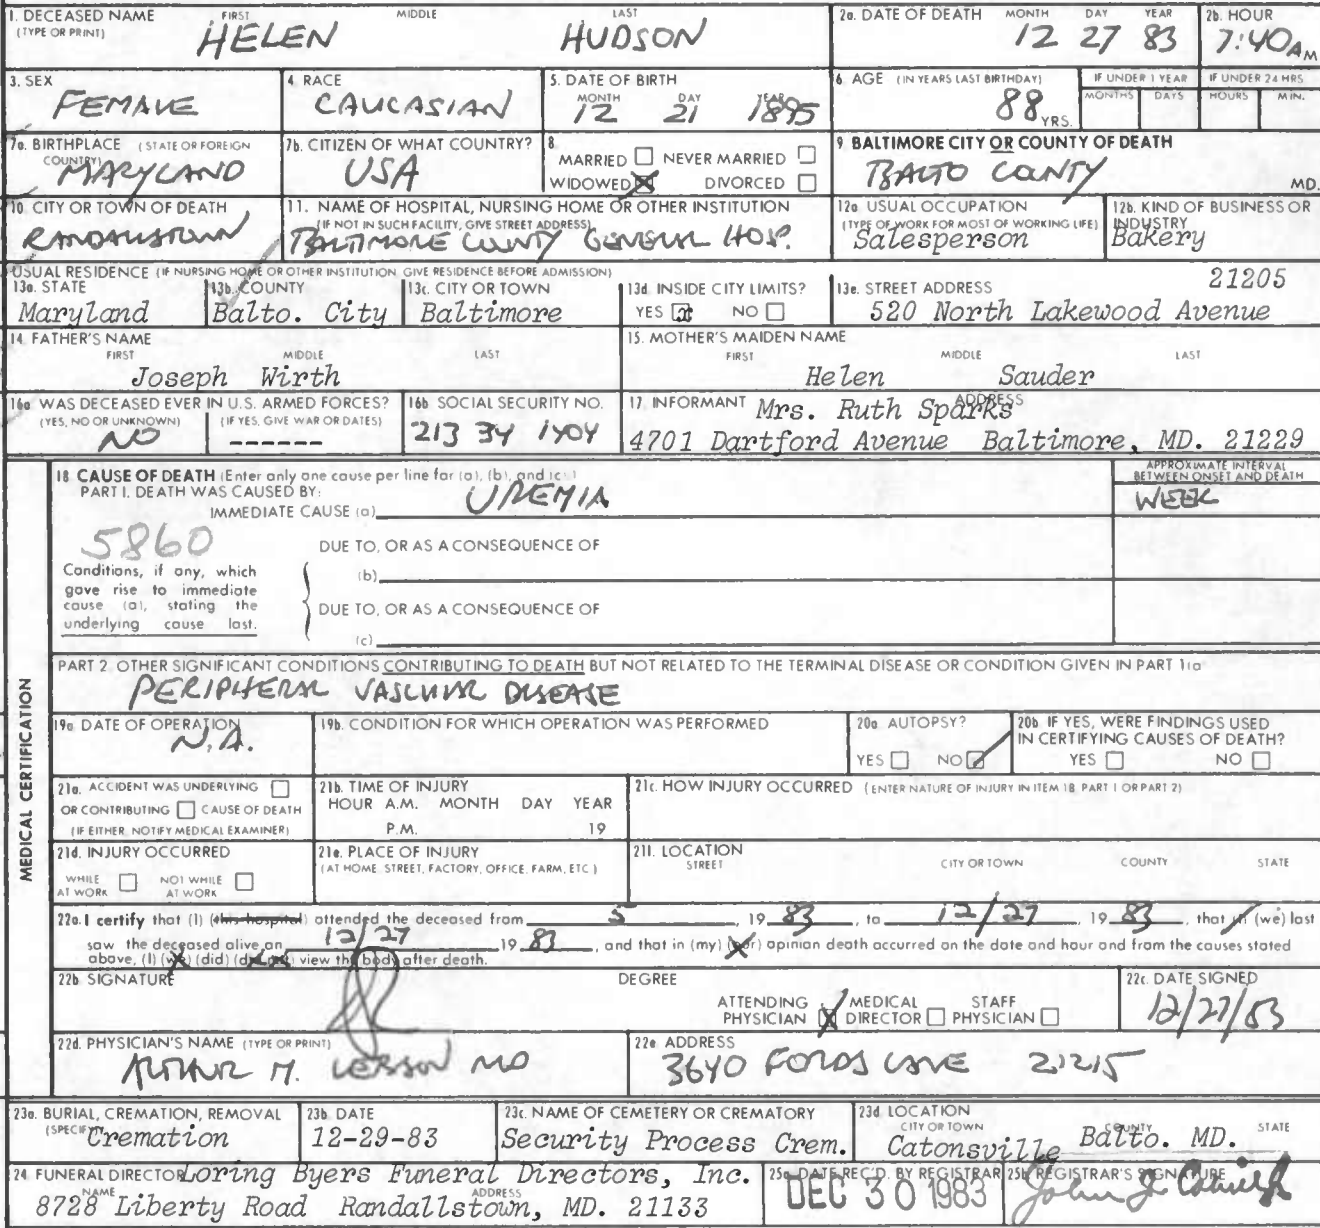 1. DECEASED NAME FIRST MIDDLE LAST
(TYPE OR PRINT)
HELEN HUDSON
2a. DATE OF DEATH MONTH DAY YEAR
12 27 83
2b. HOUR
7:40 AM
3. SEX
FEMALE
4. RACE
CAUCASIAN
5. DATE OF BIRTH
MONTH DAY YEAR
12 21 1895
6. AGE (IN YEARS LAST BIRTHDAY)
88 YRS.
IF UNDER 1 YEAR
MONTHS DAYS
IF UNDER 24 HRS
HOURS MIN.
7a. BIRTHPLACE (STATE OR FOREIGN
COUNTRY)
MARYLAND
7b. CITIZEN OF WHAT COUNTRY?
USA
8.
MARRIED NEVER MARRIED
WIDOWED DIVORCED
9. BALTIMORE CITY OR COUNTY OF DEATH
BALTO COUNTY MD.
10. CITY OR TOWN OF DEATH
RANDALLSTOWN
11. NAME OF HOSPITAL, NURSING HOME OR OTHER INSTITUTION
(IF NOT IN SUCH FACILITY, GIVE STREET ADDRESS)
BALTIMORE COUNTY GENERAL HOSP.
12a. USUAL OCCUPATION
(TYPE OF WORK FOR MOST OF WORKING LIFE)
Salesperson
12b. KIND OF BUSINESS OR
INDUSTRY
Bakery
USUAL RESIDENCE (IF NURSING HOME OR OTHER INSTITUTION GIVE RESIDENCE BEFORE ADMISSION)
13a. STATE
Maryland
13b. COUNTY
Balto. City
13c. CITY OR TOWN
Baltimore
13d. INSIDE CITY LIMITS?
YES x NO
13e. STREET ADDRESS 21205
520 North Lakewood Avenue
14. FATHER'S NAME
FIRST MIDDLE LAST
Joseph Wirth
15. MOTHER'S MAIDEN NAME
FIRST MIDDLE LAST
Helen Sauder
16a WAS DECEASED EVER IN U.S. ARMED FORCES?
(YES, NO OR UNKNOWN) (IF YES, GIVE WAR OR DATES)
NO ------
16b SOCIAL SECURITY NO.
213 34 1404
17. INFORMANT ADDRESS
Mrs. Ruth Sparks
4701 Dartford Avenue Baltimore, MD. 21229
MEDICAL CERTIFICATION
18 CAUSE OF DEATH (Enter only one cause per line for (a), (b), and (c).)
PART I. DEATH WAS CAUSED BY:
IMMEDIATE CAUSE (a) UREMIA
APPROXIMATE INTERVAL
BETWEEN ONSET AND DEATH
WEEK
5860
Conditions, if any, which
gave rise to immediate
cause (a), stating the
underlying cause last.
DUE TO, OR AS A CONSEQUENCE OF
(b)
DUE TO, OR AS A CONSEQUENCE OF
(c)
PART 2 OTHER SIGNIFICANT CONDITIONS CONTRIBUTING TO DEATH BUT NOT RELATED TO THE TERMINAL DISEASE OR CONDITION GIVEN IN PART 1(a
PERIPHERAL VASCULAR DISEASE
19a DATE OF OPERATION
N.A.
19b. CONDITION FOR WHICH OPERATION WAS PERFORMED
20a AUTOPSY?
YES NO
20b. IF YES, WERE FINDINGS USED
IN CERTIFYING CAUSES OF DEATH?
YES NO
21a. ACCIDENT WAS UNDERLYING
OR CONTRIBUTING CAUSE OF DEATH
(IF EITHER, NOTIFY MEDICAL EXAMINER)
21b. TIME OF INJURY
HOUR A.M. MONTH DAY YEAR
P.M. 19
21c. HOW INJURY OCCURRED (ENTER NATURE OF INJURY IN ITEM 18, PART 1 OR PART 2)
21d. INJURY OCCURRED
WHILE AT WORK NOT WHILE AT WORK
21e. PLACE OF INJURY
(AT HOME, STREET, FACTORY, OFFICE, FARM, ETC.)
21f. LOCATION
STREET CITY OR TOWN COUNTY STATE
22a. I certify that (I) (this hospital) attended the deceased from 5, 1983, to 12/27, 1983, that (we) last
saw the deceased alive on 12/27 1983, and that in (my) (our) opinion death occurred on the date and hour and from the causes stated
above, (I) (we) (did) (did not) view the body after death.
22b SIGNATURE DEGREE
ATTENDING PHYSICIAN X MEDICAL DIRECTOR STAFF PHYSICIAN
22c. DATE SIGNED
12/27/83
22d. PHYSICIAN'S NAME (TYPE OR PRINT)
ARTHUR M. LEBSON MD
22e ADDRESS
3640 FORDS LANE 21215
23a. BURIAL, CREMATION, REMOVAL
(SPECIFY)
Cremation
23b DATE
12-29-83
23c. NAME OF CEMETERY OR CREMATORY
Security Process Crem.
23d LOCATION
CITY OR TOWN COUNTY STATE
Catonsville Balto. MD.
24. FUNERAL DIRECTOR Loring Byers Funeral Directors, Inc.
NAME ADDRESS
8728 Liberty Road Randallstown, MD. 21133
25a DATE REC'D. BY REGISTRAR
DEC 30 1983
25b REGISTRAR'S SIGNATURE